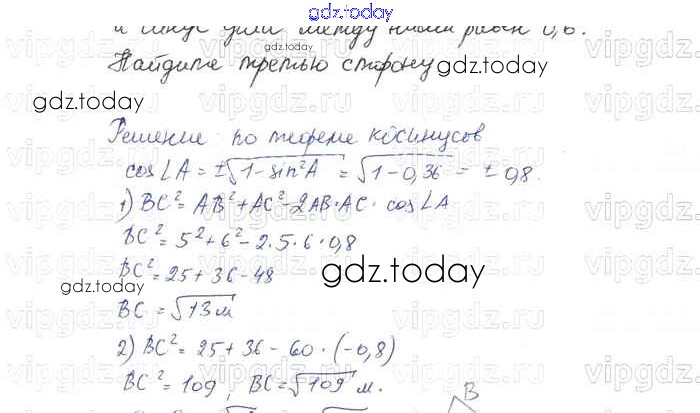 gdz.today
и синус угла между ними равен 0,6.
Найдите третью сторону gdz.today
gdz.today
Решение: по теореме косинусов
cos∠A = ±√1-sin²A = √1-0,36 = ±0,8.
1) BC² = AB² + AC² - 2AB·AC· cos∠A
BC² = 5² + 6² - 2·5·6·0,8
BC² = 25 + 36 - 48 gdz.today
gdz.today
BC = √13 м
2) BC² = 25 + 36 - 60 · (-0,8)
BC² = 109, BC = √109 м.
B
gdz.today